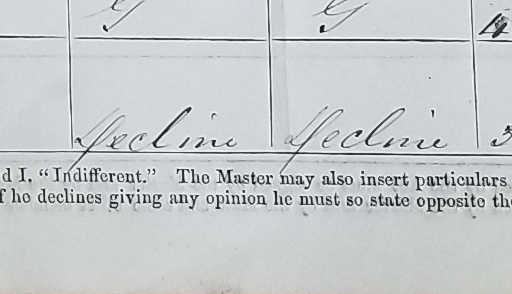 G G 4
Decline Decline 3
d I. "Indifferent." The Master may also insert particulars
f he declines giving any opinion he must so state opposite the